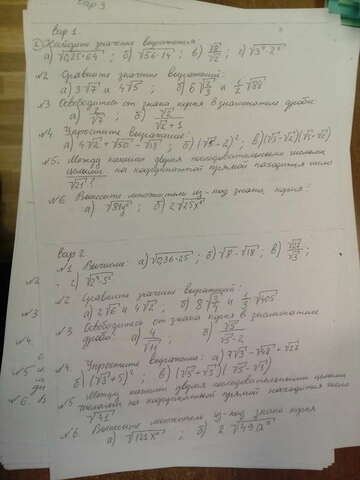 вар 3
Вар 1
1) Найдите значение выражения:
а) √0,25·64 ; б) √56·14 ; в) √8/√2 ; г) √3⁴·2⁶
№2 Сравните значения выражений:
а) 3√7 и 4√5 ; б) 6√ и 1/2√88
№3 Освободитесь от знака корня в знаменателе дроби:
а) /√7 ; б) √2/√2+1
№4 Упростите выражение:
а) 4√2 + √50 - √18 ; б) (√3 - 2)² ; в)(√5-√2)(√5+√2)
№5. Между какими двумя последовательными целыми
на координатной прямой находится число
√21 ?
№6. Вынесите множитель из-под знака корня:
а) ; б) 2√25
Вар 2
№1 Вычисли: а) √0,36·25 ; б) √8·√18 ; в) √27/√3 ;
№2 г)
№2 Сравните значения выражений:
№3 а) 2√6 и 4√2 ; б) 8√ и 1/3√405
№3 Освободитесь от знака корня в знаменателе
№4 дроби: а) 4/√11 ; б) √5/√5-2
№4. Упростите выражение: а) 7√3 - √48 + √27
№5 б) (√3+5)² ; в) (√5-√3)(√5+√3)
№5 Между какими двумя последовательными целыми
числами на координатной прямой находится число
√41 ?
№6
№6. Вынесите множитель из-под знака корня
а) √121 ; б) 2√49